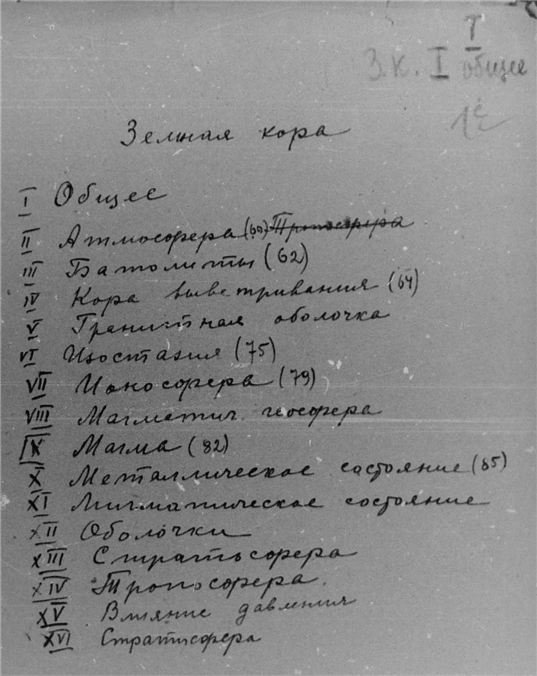 I
З.К. I общее
Земная кора
I Общее
II Атмосфера (60) Тропосфера
III Батолиты (62)
IV Кора выветривания (64)
V Гранитная оболочка
VI Изостазия (75)
VII Ионосфера (79)
VIII Магматич. геосфера
IX Магма (82)
X Металлическое состояние (85)
XI Мигматическое состояние
XII Оболочки
XIII Стратосфера
XIV Тропосфера.
XV Влияние давления
XVI Стратисфера